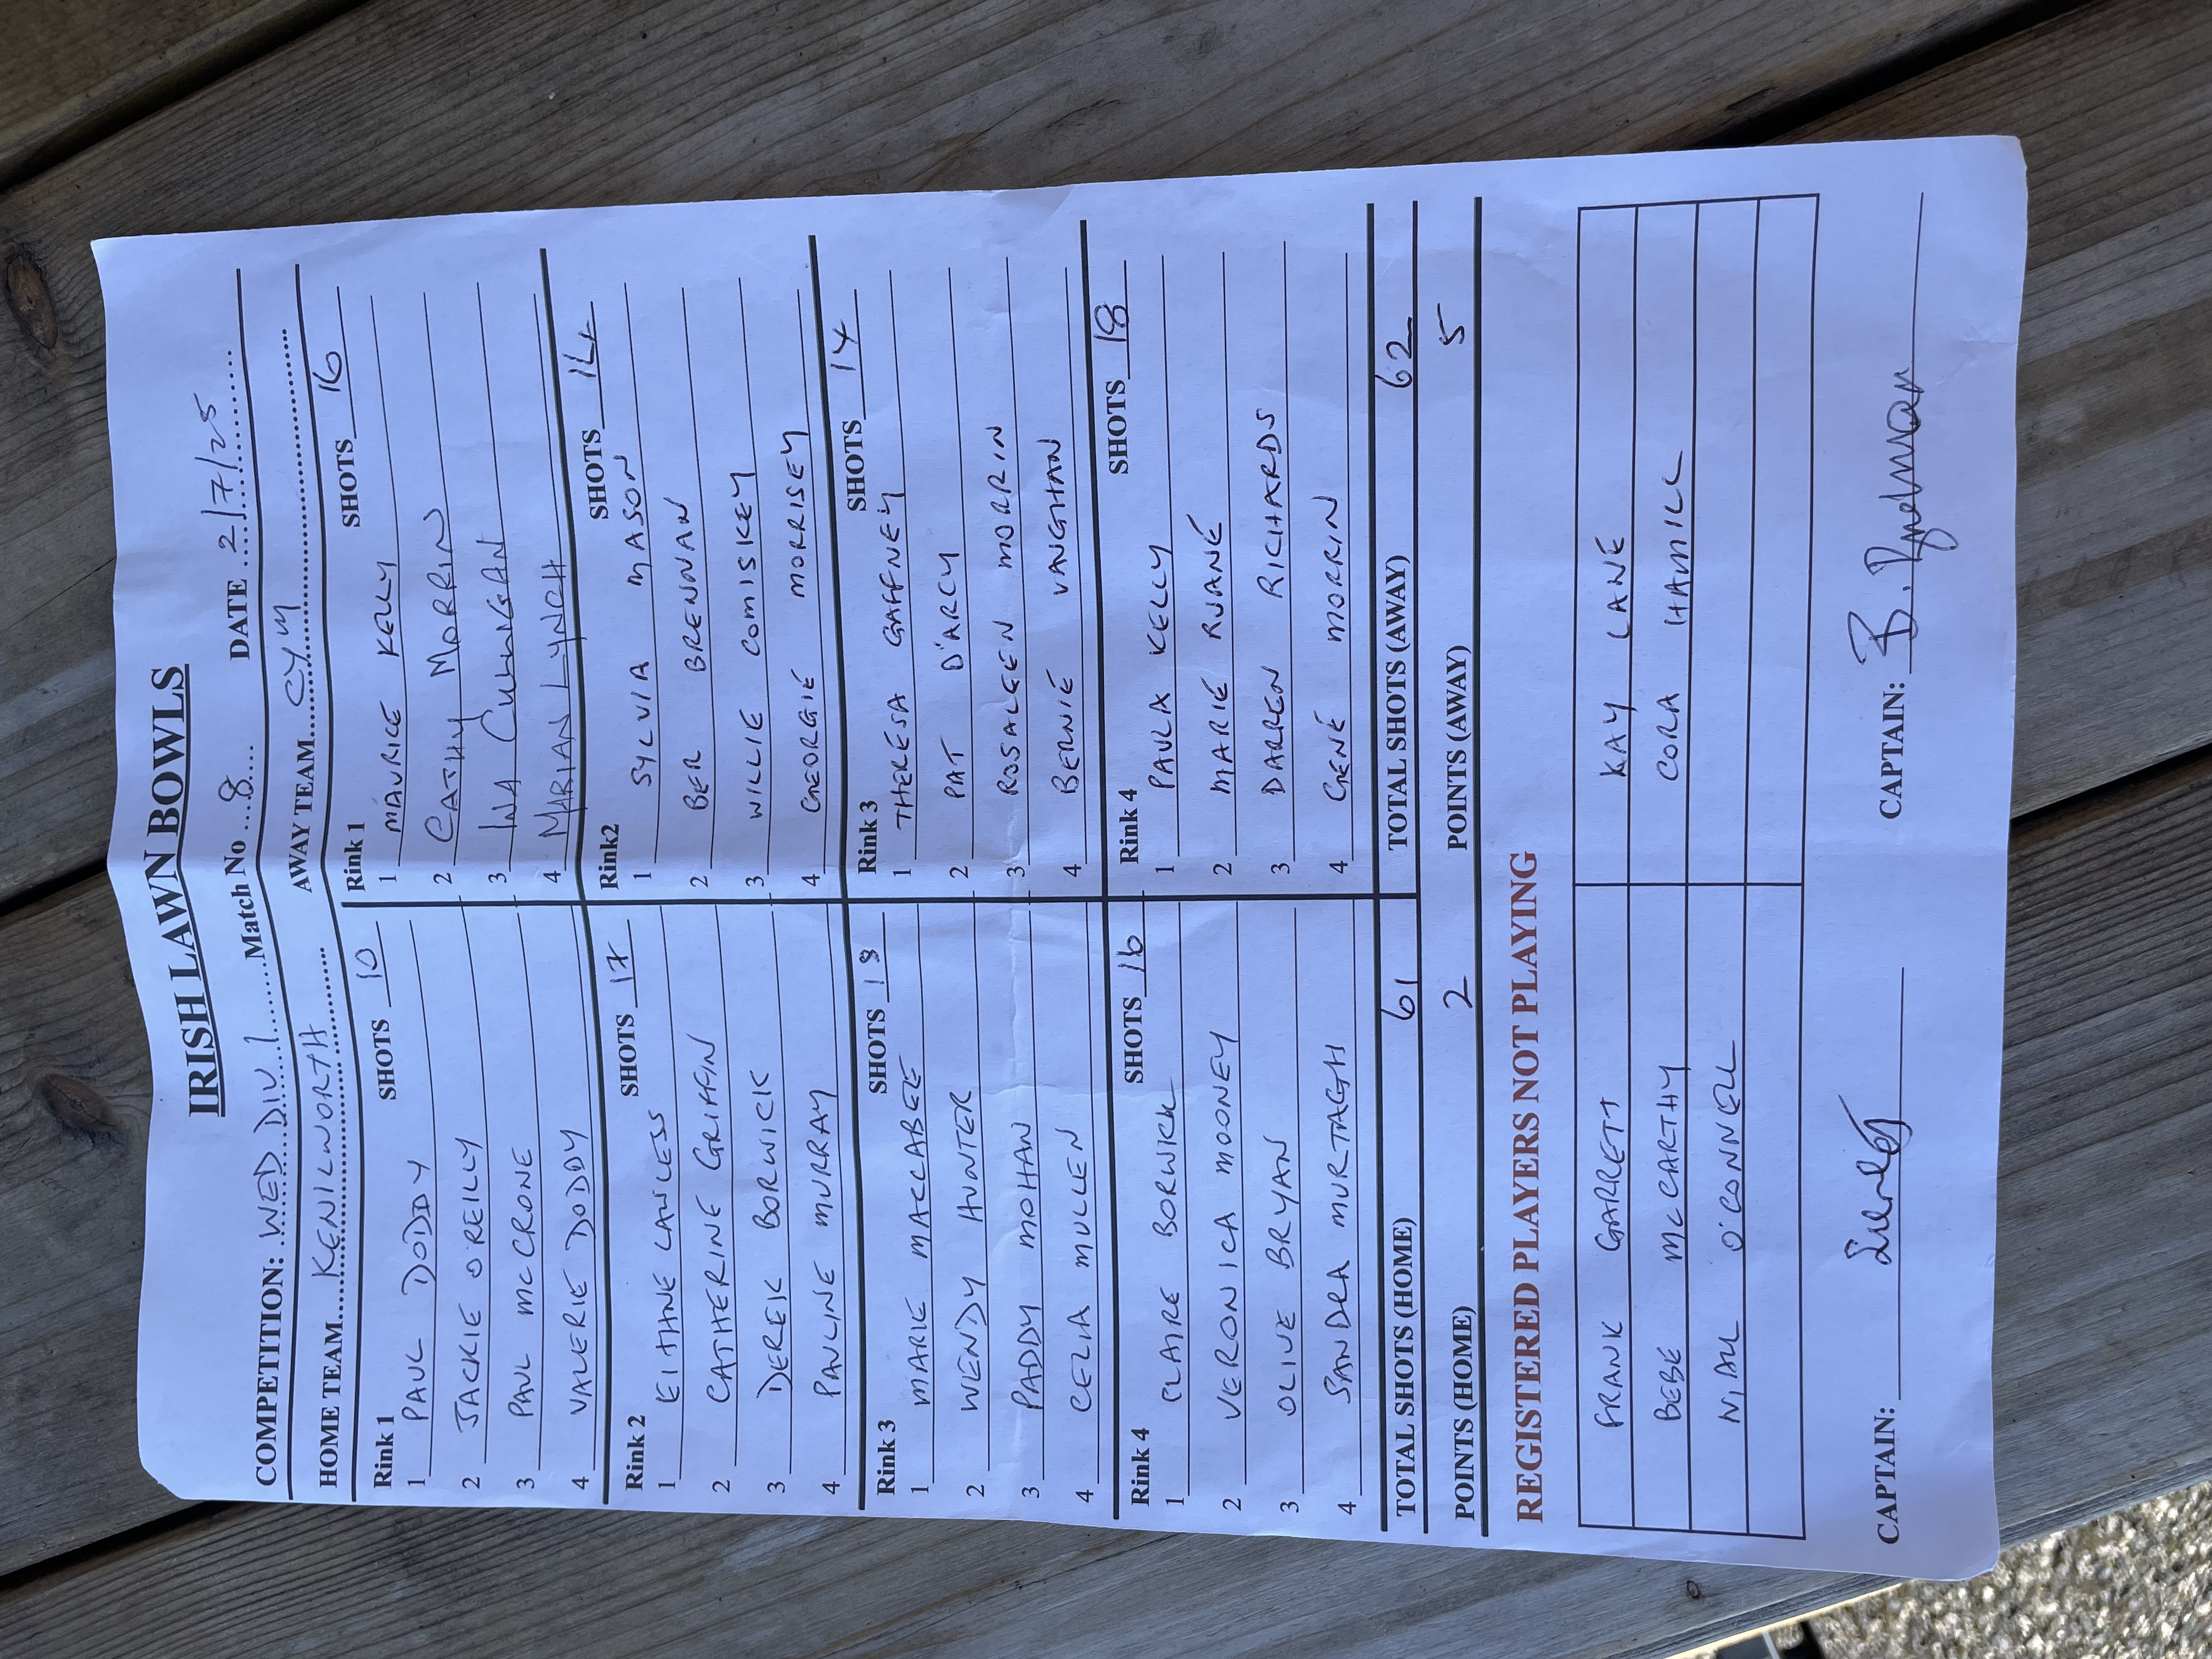 IRISH LAWN BOWLS
COMPETITION: WED DIV 1 Match No 8 DATE 2/7/25
HOME TEAM KENILWORTH AWAY TEAM CYM
Rink 1 SHOTS 10
1 PAUL DODDY
2 JACKIE O'REILLY
3 PAUL MCCRONE
4 VALERIE DODDY
Rink 1 SHOTS 16
1 MAURICE KELLY
2 CATHY MORRIN
3 INA CULLIGAN
4 MARIAN LYNCH
Rink 2 SHOTS 17
1 EITHNE LAWLESS
2 CATHERINE GRIFFIN
3 DEREK BORWICK
4 PAULINE MURRAY
Rink2 SHOTS 14
1 SYLVIA MASON
2 BER BRENNAN
3 WILLIE COMISKEY
4 GEORGIE MORRISEY
Rink 3 SHOTS 18
1 MARIE MACCLABEE
2 WENDY HUNTER
3 PADDY MOHAN
4 CELIA MULLEN
Rink 3 SHOTS 14
1 THERESA GAFFNEY
2 PAT D'ARCY
3 ROSALEEN MORRIN
4 BERNIE VAUGHAN
Rink 4 SHOTS 16
1 CLAIRE BORWICK
2 VERONICA MOONEY
3 OLIVE BRYAN
4 SANDRA MURTAGH
Rink 4 SHOTS 18
1 PAULA KELLY
2 MARIE RUANE
3 DARREN RICHARDS
4 GENE MORRIN
TOTAL SHOTS (HOME) 61 TOTAL SHOTS (AWAY) 62
POINTS (HOME) 2 POINTS (AWAY) 5
REGISTERED PLAYERS NOT PLAYING
FRANK GARRETT KAY LANE
BEBE MCCARTHY CORA HAMILL
NIALL O'CONNELL
CAPTAIN: CAPTAIN: B.